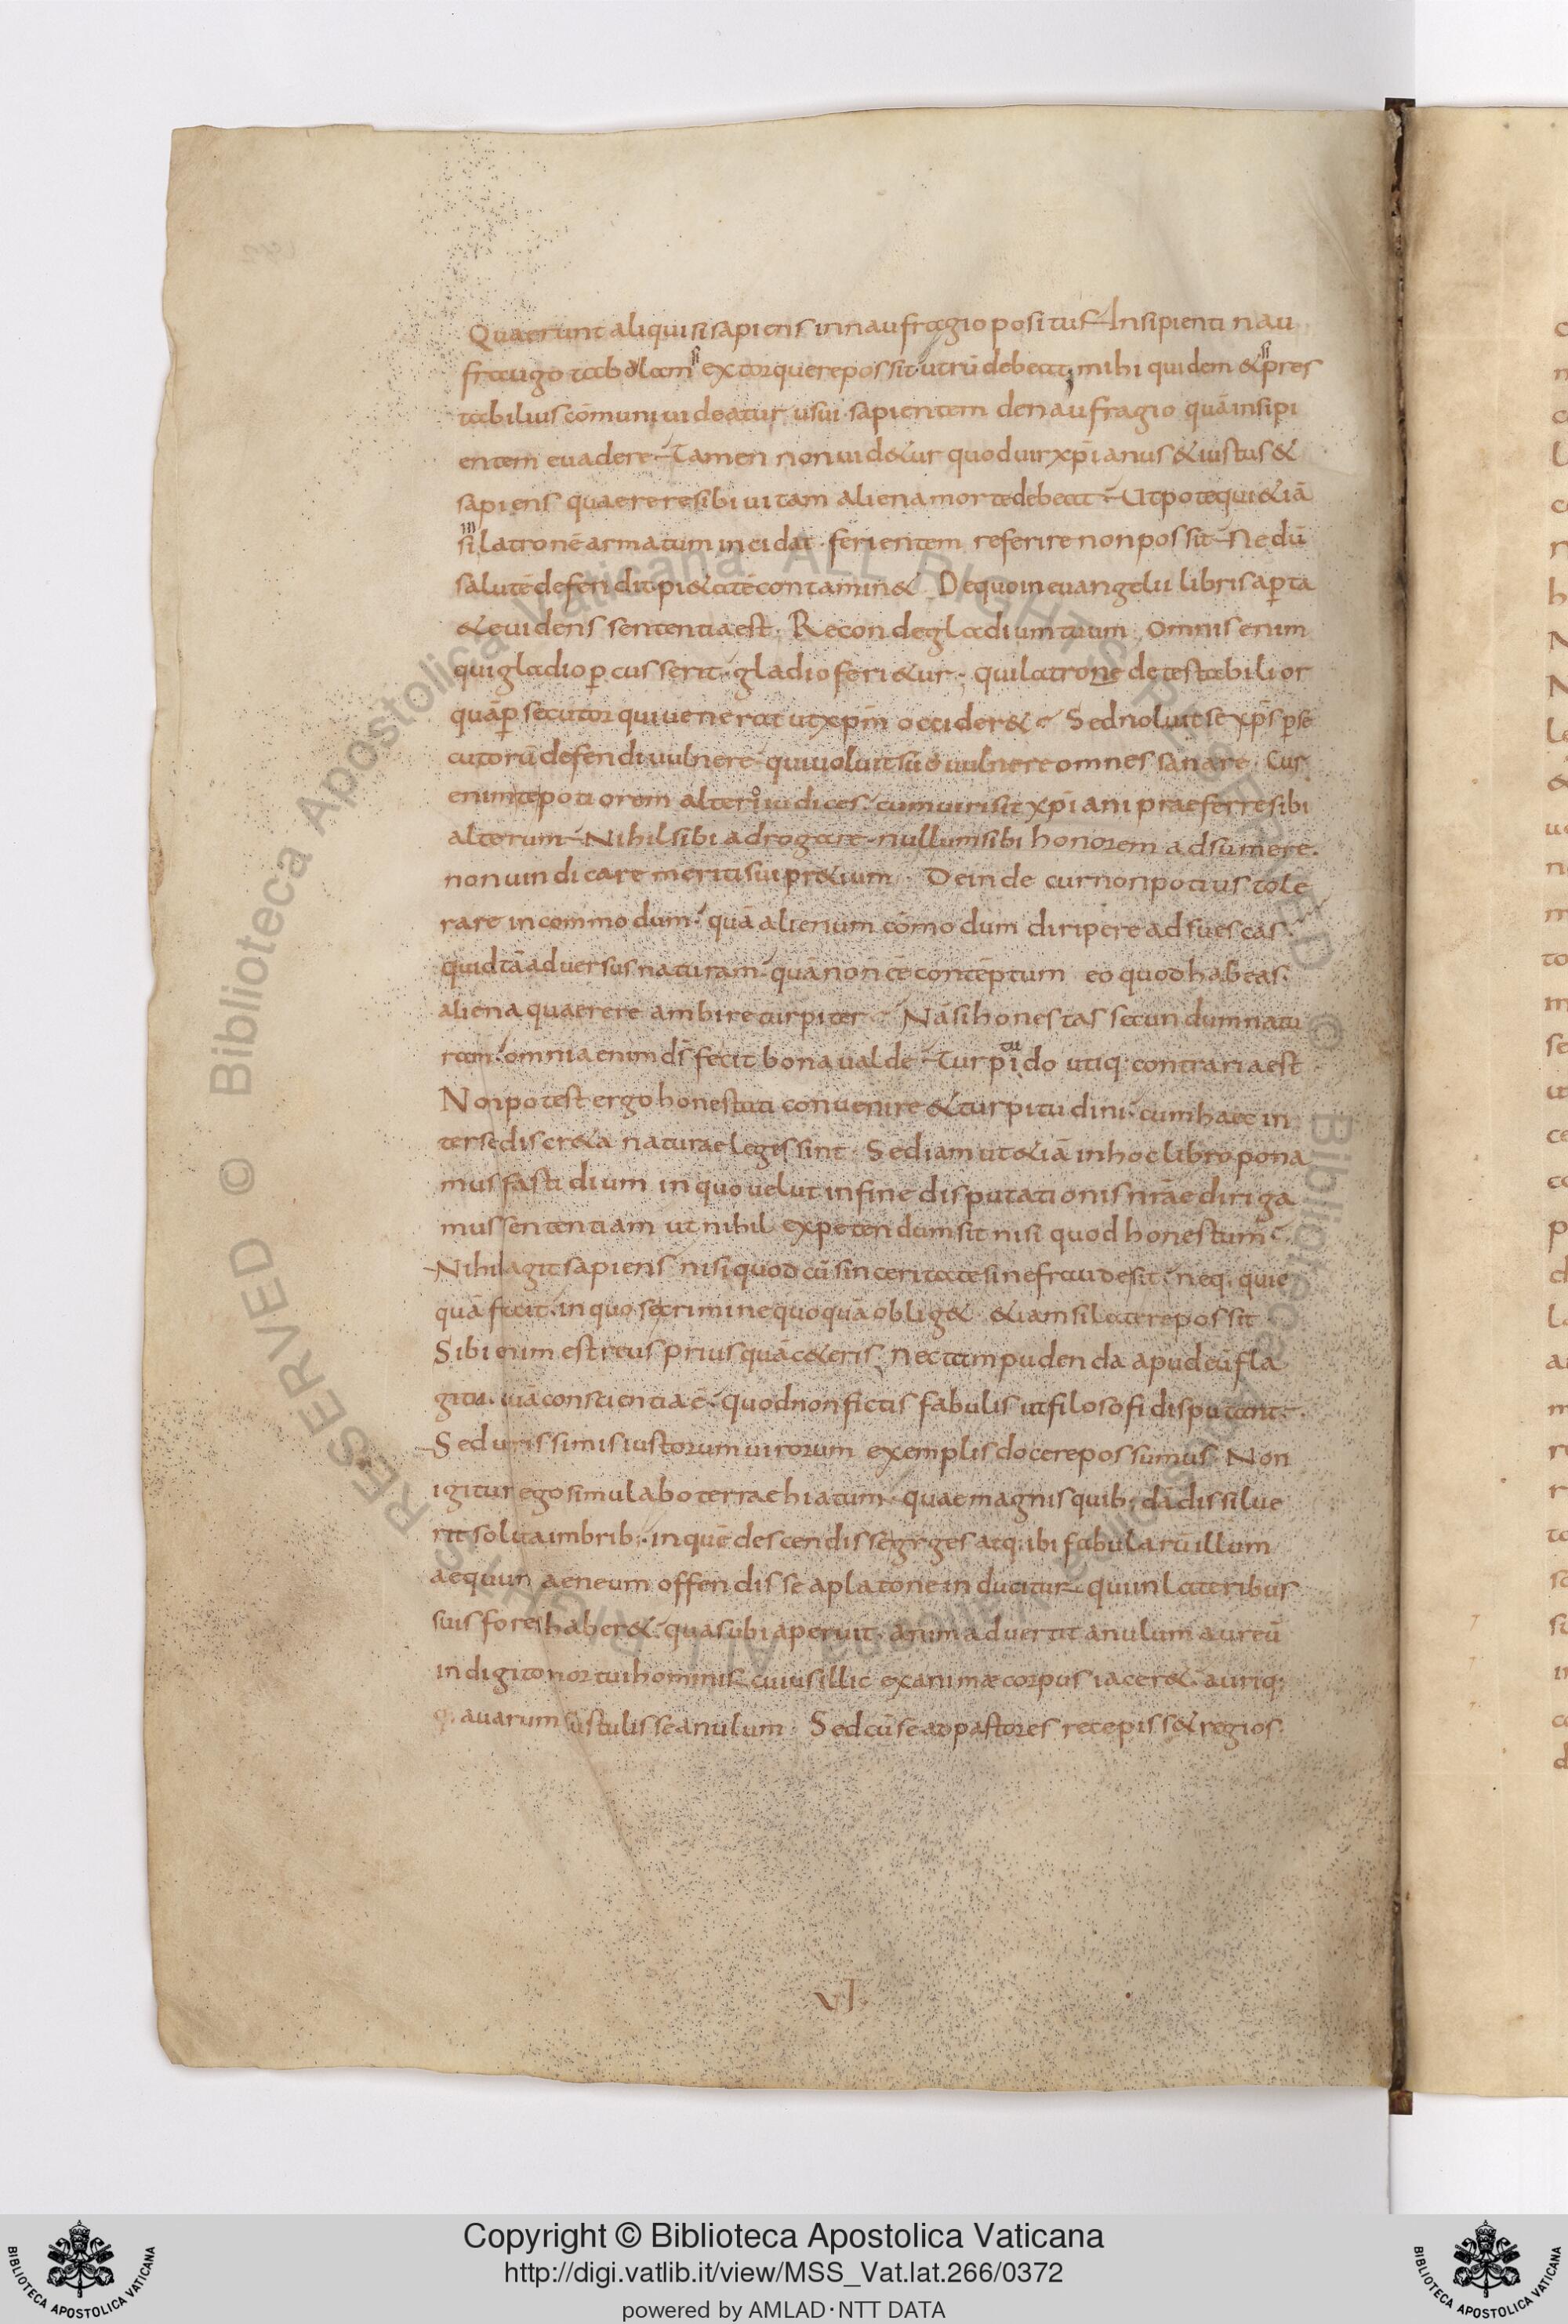 Quaerunt aliqui si sapiens in naufragio positus Insipienti nau
fraugo tabolam si extorquere possit utrū debeat; mihi quidem & si pres
tabilius cōmuni uideatur usui sapientem de naufragio quā insipi
entem euadere Tamen non uid&ur quod uir xp̄ianus & iustus &
sapiens quaerere sibi uitam aliena morte debeat Utpote qui &iā
si in latronē armatum incidat ferientem referire non possit Ne dū
salutē defendit pi&atē contamin& De quo in euangelii libris ap̄ta
& euidens sententia est. Reconde gladium tuum Omnis enim
qui gladio p̄cusserit gladio feri&ur. qui latrone detestabilior
quā p̄secutor qui uenerat ut xp̄m occider& Sed noluit se xp̄s p̄se
cutorū defendi uulnere qui uoluit suo uulnere omnes sanare Cur
enim te potiorem alteri iudices cum uiri sit xp̄iani praeferre sibi
alterum Nihil sibi adrogare nullum sibi honorem adsumere.
non uindicare meriti sui pr&ium. Deinde cur non potius tole
rare incommodum quā alienum cōmodum diripere adsuescas.
quid tā aduersus naturam quā non eē contēptum eo quod habeas.
aliena quaerere ambire turpiter Nā si honestas secundum natu
ram omnia enim d̄s fecit bona ualde Turpitudo utiq. contraria est
Non potest ergo honestati conuenire & turpitudini cum haec in
ter se discr&a naturae leges sint. Sed iam ut &iā in hoc libro pona
mus fastidium in quo uelut in fine disputationis nr̄ae diriga
mus sententiam ut nihil expetendum sit nisi quod honestum
Nihil agit sapiens nisi quod cū sinceritate sine fraude sit. neq. quic
quā facit in quo se crimine quoquā oblig& &iam si latere possit
Sibi enim est reus priusquā c&eris Nec tam pudenda apud eū fla
gitii. quā conscientiae ē. quod non fictis fabulis ut filosofi disputant.
Sed uerissimis iustorum uirorum exemplis docere possumus. Non
igitur ego simulabo terrae hiatum quae magnis quib; dā dissilue
rit soluta imbrib; in quē descendisse gyges atq; ibi fabularū illum
aequum aeneum offendisse a platone inducitur qui in lateribus
suis fores haber& quas ubi aperuit. animaduertit anulum aureū
in digito mortui hominis cuius illic exanimæ corpus iacer& auriq;
q; auarum sustulisse anulum. Sed cū se ad pastores recepiss& regios.
VI
Copyright © Biblioteca Apostolica Vaticana
http://digi.vatlib.it/view/MSS_Vat.lat.266/0372
powered by AMLAD·NTT DATA